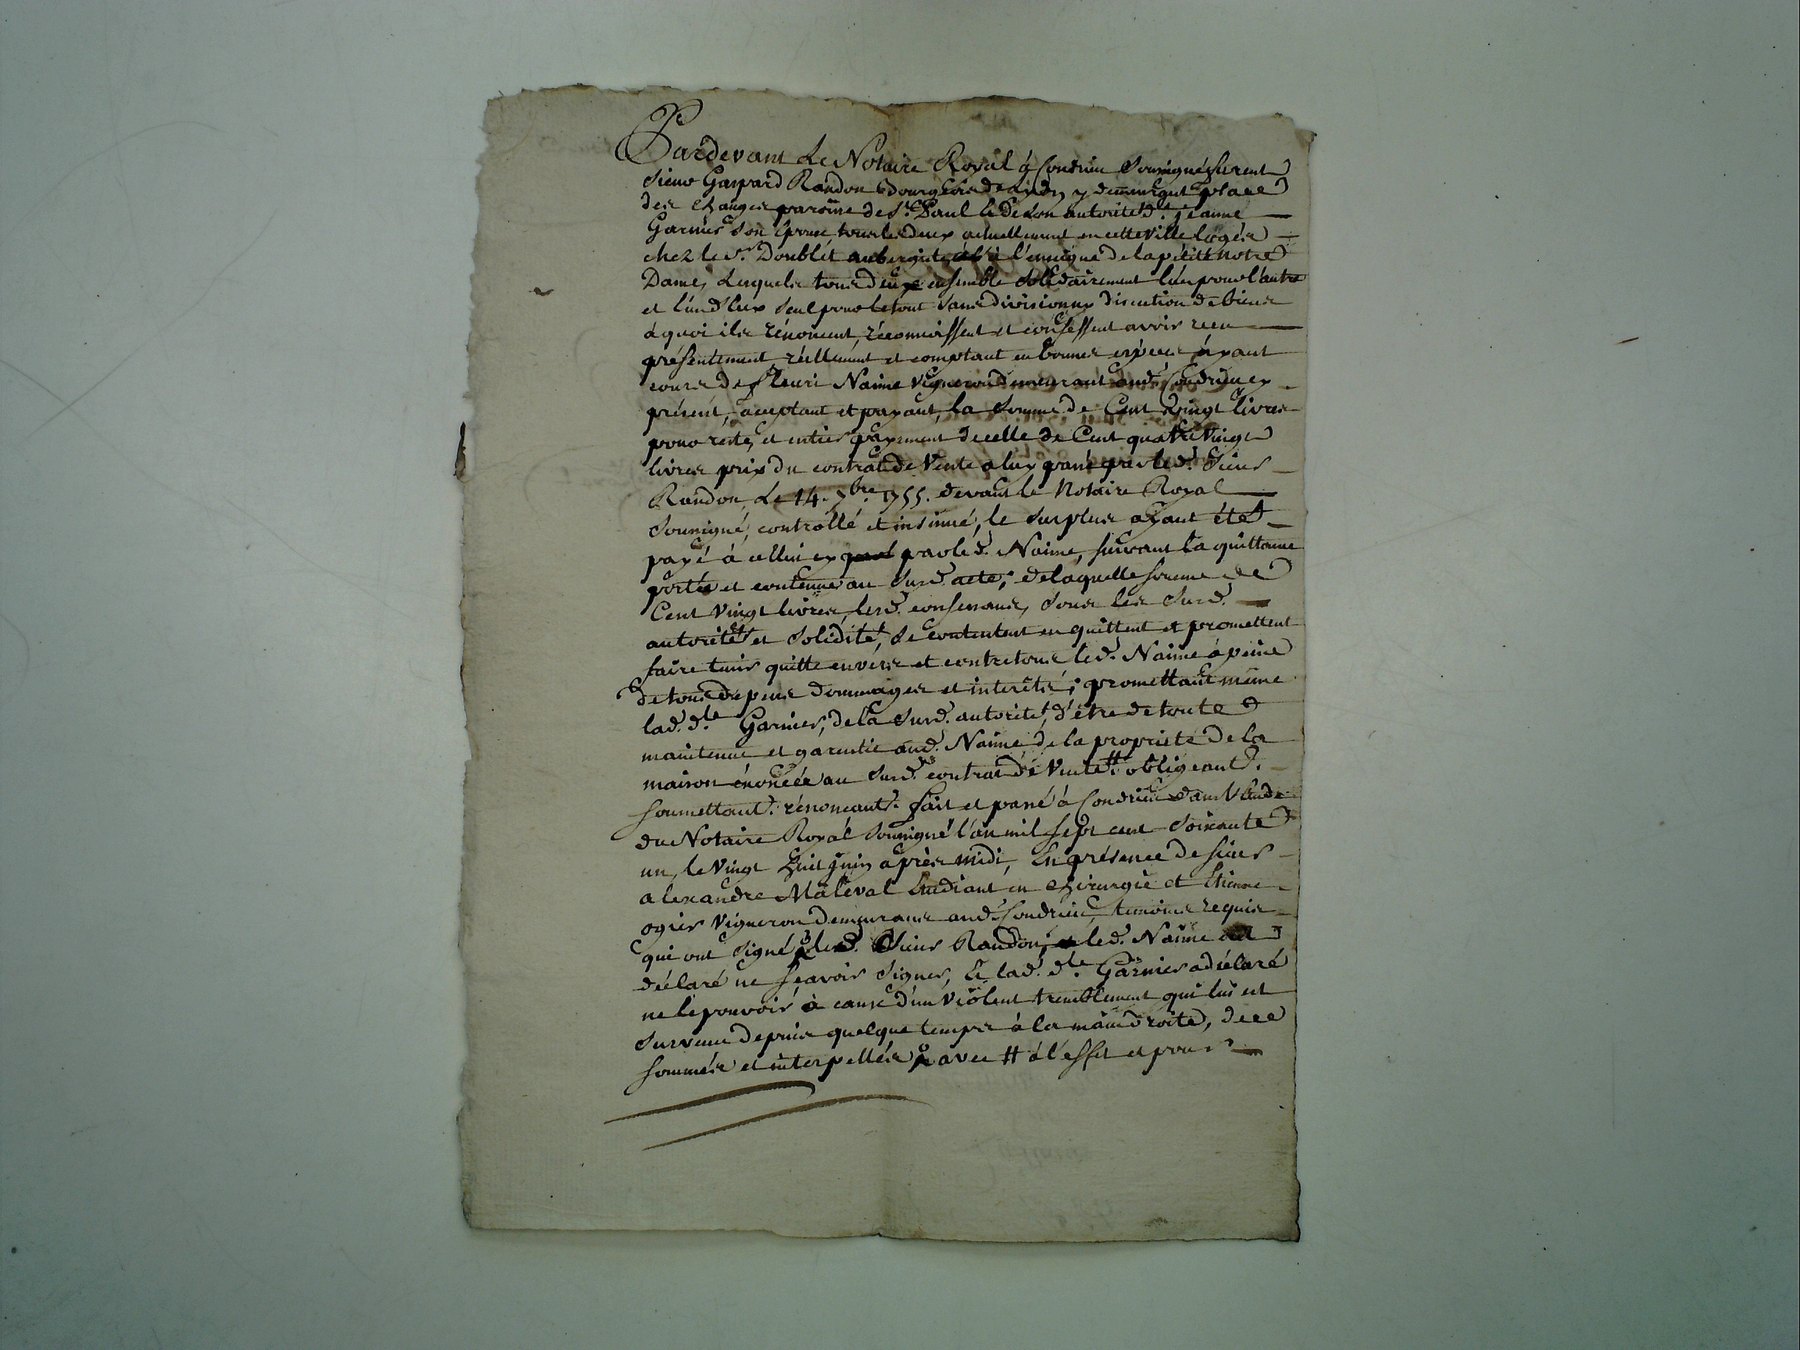 Pardevant Le Notaire Royal à Condrieu Soussigné furent
Sieur Gaspard Randon Bourgeois de y demeurant place
des changes paroisse de St. Paul & de son autorité De. jeanne
Garnier son épouse tous les deux actuellement en cette ville logés
chez le Sr. Doublet aubergiste à l'enseigne de la petite Notre
Dame, Lesquels tous deux ensemble solidairement l'un pour l'autre
et l'un d'eux seul pour le tout sans division ny discution de biens
à quoi ils rénoncent, réconnoissent et confessent avoir reçu
présentement réellement et comptant en bonnes espèces ayant
cours de fleuri Naime vigneron demeurant aud. Condrieu cy
présent, aceptant et payant, la somme de Cent vingt livres
pour reste, et entier payement de celle de Cent quatre vingt
livres prix du contrat de Vente a luy passé par led. Sieur
Randon, Le 14. 7bre 1755. devant le Notaire Royal
soussigné, controllé et insinué, le surplus ayant été
payé à cellui cy par led. Naime, suivant la quittance
portée et contenue au susd. acte; de laquelle somme de
Cent vingt livres lesd. confessans, sous les susd.
autorité et solidité, se contentent en quittent et promettent
faire tenir quitte envers et contre tous led. Naime à peine
de tous dépens dommages et interêts; promettant même
lad. dle. Garnier, de la susd. autorité, d'être de toute
maintenue et garentie aud. Naime de la proprieté de la
maison énoncée au susd. contrat de Vente # obligeant.
soumettant. rénonceant. fait et passé à Condrieu dans l'étude
du Notaire Royal soussigné l'an mil sept cent soixante
un, le vingt huit juin après midi, En présence de sieur
alexandre Maleval Etudiant en chirurgie et Etienne
ogier vigneron demeurans aud. Condrieu, temoins requis
qui ont signé led. Sieur Randon, led. Naime a
déclaré ne sçavoir signer, & lad. dle. Garnier a déclaré
ne le pouvoir à cause d'un violent tremblement qui lui est
survenu depuis quelque temps à la main droite, de ce
sommés et interpellés avec # à l'effet et pour